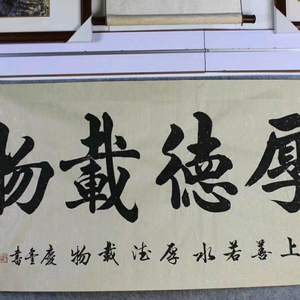 厚德載物
上善若水厚德載物慶重書